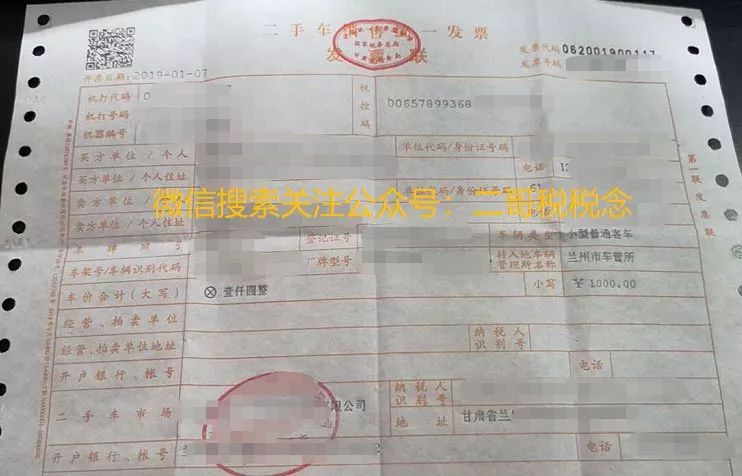 二手车销售统一发票
发票联
国家税务总局
开票日期:2019-01-07
发票代码 062001900117
发票号码
机打代码 0
机打号码
机器编号
税控码
00657899368
买方单位/个人
单位代码/身份证号码
买方单位/个人住址
电话 1
卖方单位/个人
单位代码/身份证号码 61
卖方单位/个人住址
微信搜索关注公众号：二哥税税念
车牌照号
登记证号
车辆类型 小型普通客车
车架号/车辆识别代码
厂牌型号
转入地车辆管理所名称 兰州市车管所
车价合计(大写) ⊗壹仟圆整
小写 ¥ 1000.00
经营、拍卖单位
经营、拍卖单位地址
纳税人识别号
开户银行、帐号
电话
二手车市场
有限公司
纳税人识别号
地址 甘肃省兰
开户银行、帐号
电话
第一联 发票联